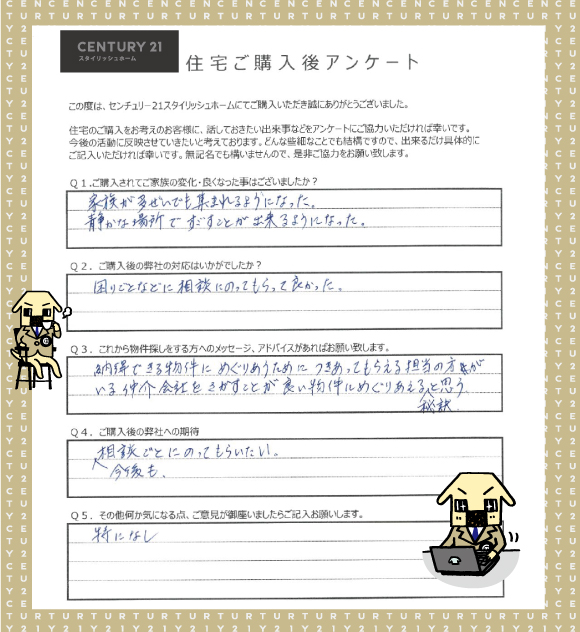 CENTURY 21
スタイリッシュホーム
住宅ご購入後アンケート
この度は、センチュリー21スタイリッシュホームにてご購入いただき誠にありがとうございました。
住宅のご購入をお考えのお客様に、話しておきたい出来事などをアンケートにご協力いただければ幸いです。
今後の活動に反映させていきたいと考えております。どんな些細なことでも結構ですので、出来るだけ具体的に
ご記入いただければ幸いです。無記名でも構いませんので、是非ご協力をお願い致します。
Q１.ご購入されてご家族の変化・良くなった事はございましたか？
家族が多ぜいでも集まれるようになった。
静かな場所ですごすことが出来るようになった。
Q２．ご購入後の弊社の対応はいかがでしたか？
困りごとなどに相談にのってもらって良かった。
Q３．これから物件探しをする方へのメッセージ、アドバイスがあればお願い致します。
納得できる物件にめぐりあうためにつきあってもらえる担当の方が
いる仲介会社をさがすことが良い物件にめぐりあえると思う
秘訣
Q４．ご購入後の弊社への期待
相談ごとにのってもらいたい。
今後も、
Q５．その他何か気になる点、ご意見が御座いましたらご記入お願いします。
特になし